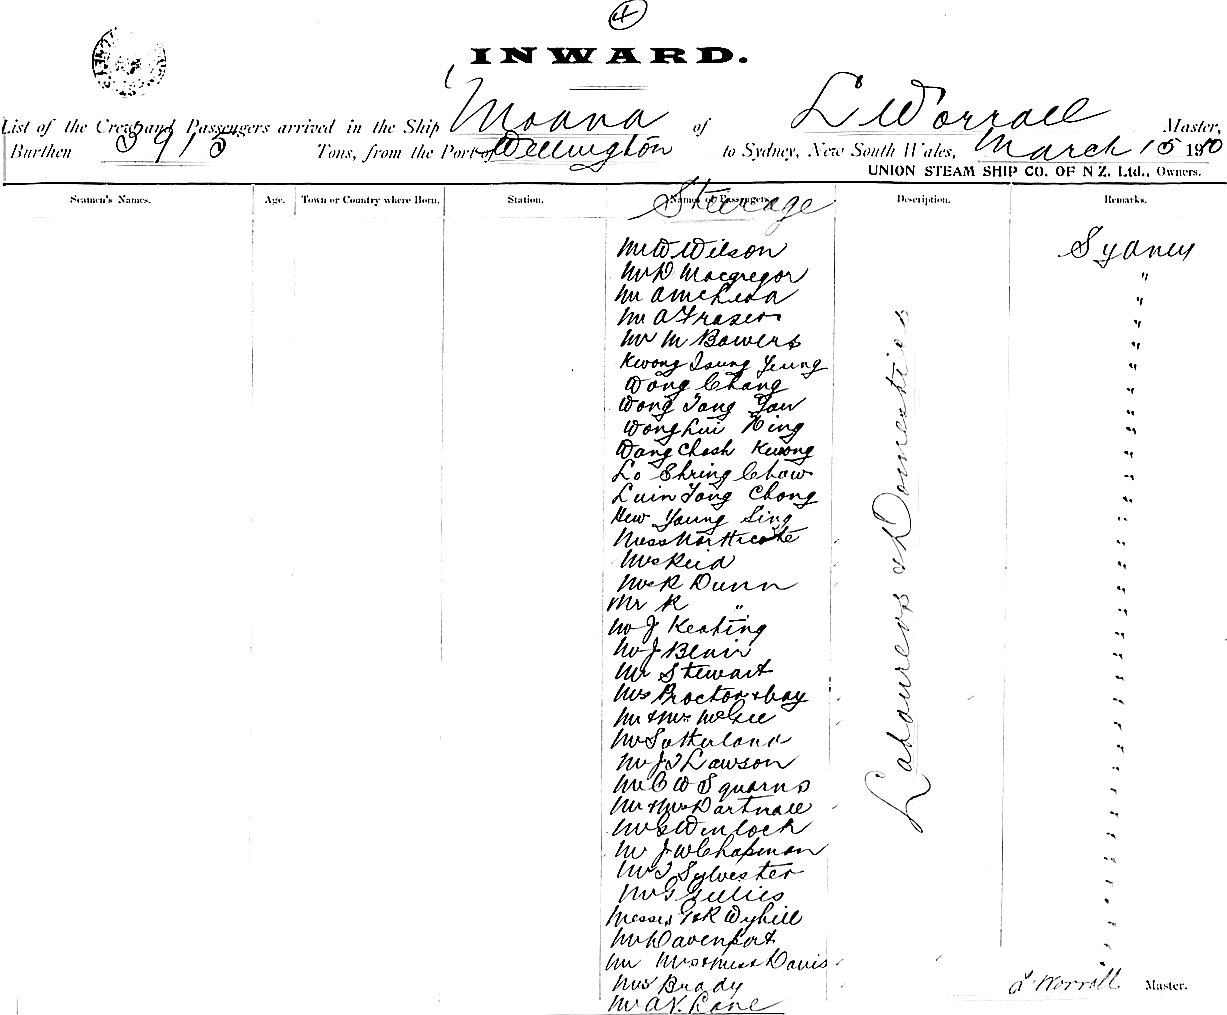 4
INWARD.
List of the Crew and Passengers arrived in the Ship Moana of L Worrall Master,
Burthen 3915 Tons, from the Port of Wellington to Sydney, New South Wales, March 15 1910
UNION STEAM SHIP CO. OF N Z. Ltd., Owners.
Seamen's Names. Age. Town or Country where Born. Station. Names of Passengers. Description. Remarks.
Steerage
Mr W Wilson Sydney
Mr D Macgregor "
Mr A "
Mr A Fraser "
Mr M Bowers "
Kwong Tsung Yeung "
Wong Chang "
Wong Tong Yow "
Wong Lui Hing "
Wang Chosh Kwong "
Lo Shring Chow "
Luin Tong Chong "
Hew Young Sing "
Miss Northcote "
Mrs Reid "
Mrs R Dunn "
Mr R " "
Mr J Keating "
Mr J Blair "
Mr Stewart "
Mrs Proctor & boy "
Mr & Mrs McGee "
Mr Sutherland "
Mr J Lawson "
Mr C W Squarns "
Mr & Mrs Dartnall "
Mr G Winlock "
Mr J W Chapman "
Mr T Sylvester "
Mr G Gillies "
Messrs G & R Wyhill "
Mr Davenport "
Mr Mrs & Miss Davis "
Mrs Brady
Mr A V. Lane
Labourers & Domestics
L Worrall Master.